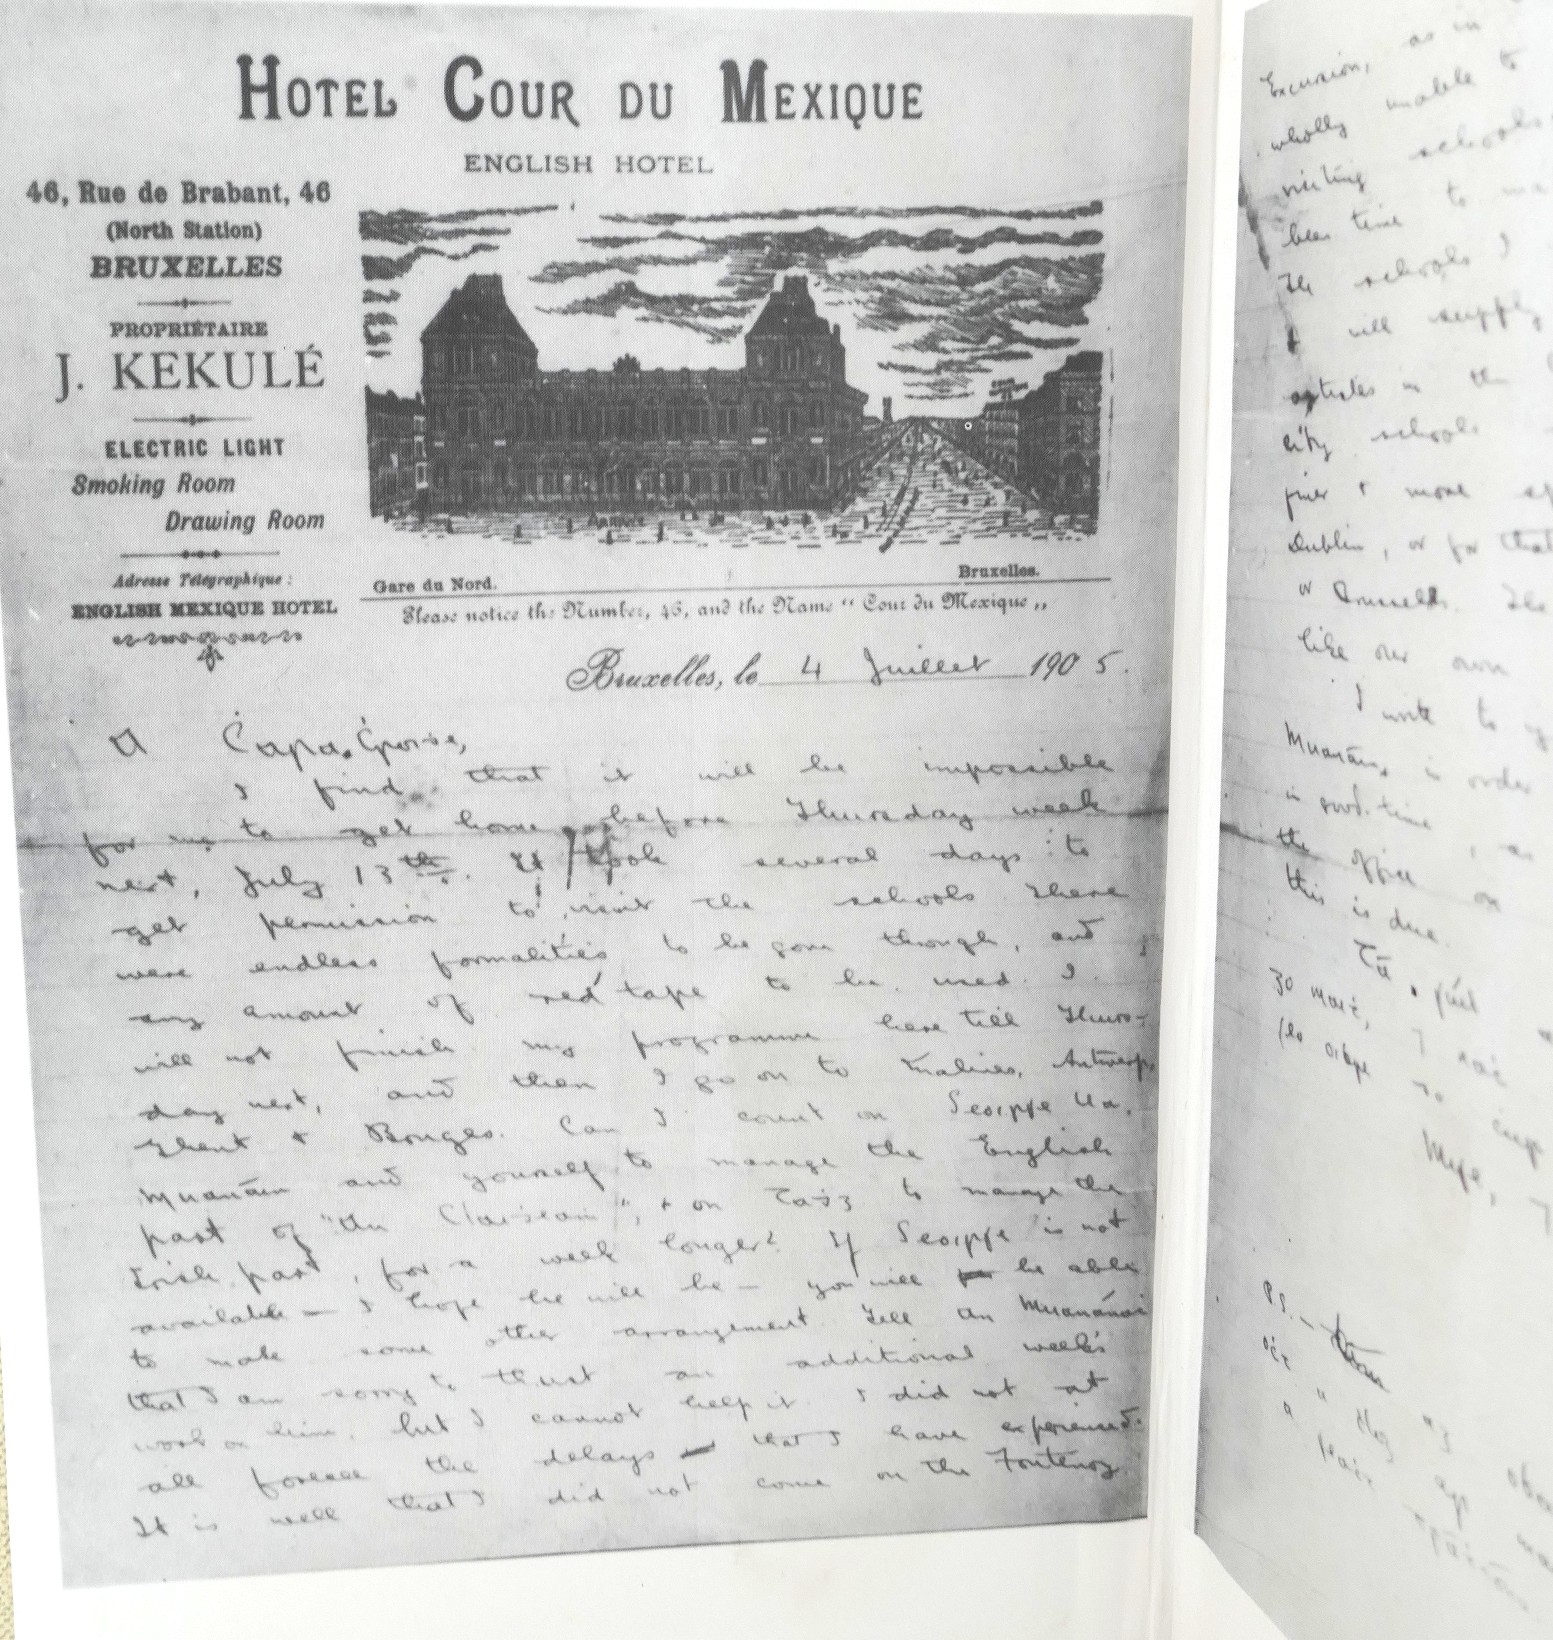 HOTEL COUR DU MEXIQUE
ENGLISH HOTEL
46, Rue de Brabant, 46
(North Station)
BRUXELLES
PROPRIÉTAIRE
J. KEKULÉ
ELECTRIC LIGHT
Smoking Room
Drawing Room
Adresse Télégraphique :
ENGLISH MEXIQUE HOTEL
Gare du Nord. Bruxelles.
Please notice the Number, 46, and the Name “ Cour du Mexique „
Bruxelles, le 4 Juillet 1905.
A Ċara Ġroiḋe,
I find that it will be impossible
for me to get home before Thursday week
next, July 13th. It took several days to
get permission to visit the schools There
were endless formalities to be gone through, and
any amount of red tape to be used. I
will not finish my programme here till Thurs-
day next, and then I go on to Malines, Antwerp,
Ghent & Bruges. Can I count on Seoirse Ua
Muanáin and yourself to manage the English
part of "An Claidheamh", & on Tadg to manage the
Irish part, for a week longer? If Seoirse is not
available — I hope he will be — you will be able
to make some other arrangement. Tell An Muanánac
that I am sorry to thrust an additional week's
work on him, but I cannot help it. I did not at
all foresee the delays that I have experienced.
It is well that I did not come on the Fontenoy
Excursion, as in
wholly unable to
visiting schools
been time to
the schools I
I will supply
articles in the
city schools
finer & more
Dublin, or for that
or Brussels. The
like our own
I write to
Muanáin, in order
in good time, as
the office on
this is due.
P.S.